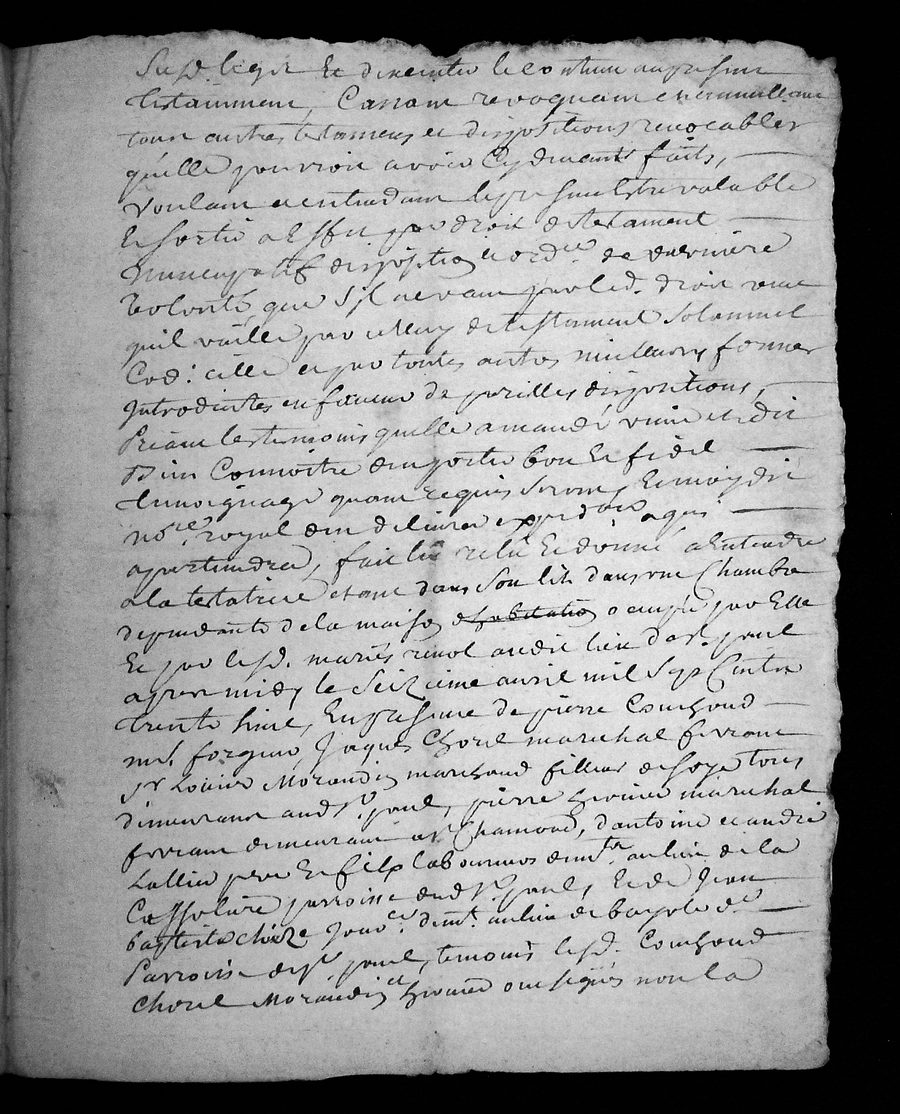 Susd. legs et dexecuter le contenu au present
testainment, Cassant revoquant et annullant
tous autres testamens et dispositions revocables
quelle pourroit avoir Cydevants faits,
voulant et entendant le present Estre valable
Et sortir a Effet par droit de testament
Nuncupatif disposition et ord.re de derniere
volonté, que s'il ne vaut par led. droit veut
quil vaille par celluy de testament Solemnel
Cod: cille et par toutes autres meilleures formes
Introduites en faveur de pareilles dispositions,
Priant les temoins quelle a mandé venir et dit
Bien Connoitre den porter bon Et fidel
temoignage quant requis seront, Et moydit
no.re royal den delivrer expeditions a qui
apartiendra, fait lu relu Et donné a Entendre
a la testatrice etant dans Son lit dans une Chambre
dependante de la maison d'habitation occupée par Elle
Et par lesd. mariés revol audit lieu de St. paul
apres midy le Seizieme avril mil Sept Cents
trente , En presence de pierre Couchoud
me. forgeur, Jaques Chorel marechal ferrant
Sr Louis Morandin marchand fillieur de soye tous
demeurants aud St. paul, pierre marechal
ferrant demeurant a St Chamond, d'antoine et andré
Lallier pere Et fils laboureurs demts. au lieu de la
parroisse dud St. paul, Et de Jean
baptiste demt. au lieu de
Parroisse de St. paul, temoins lesd. Couchoud
Chorel Morandin et ont signés non la